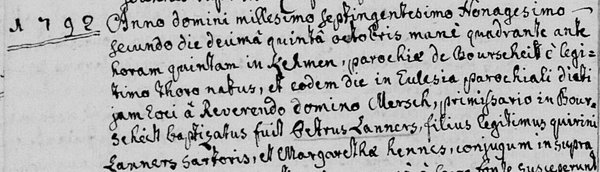 1792 Anno domini millesimo septingentesimo Nonagesimo
secundo die decimâ quintâ octobris manè quadrante ante
horam quintam in Lelmen, parochiæ de Bourscheit è legi-
timo thoro natus, et eodem die in Eulesia parochiali dicti
jam loci à Reverendo domino Mersch, primissario in Bour-
scheit baptizatus fuit Petrus Lanners, filius legitimus quirini
Lanners sartoris, et Margarethæ hennes, conjugum in supra
susceperunt